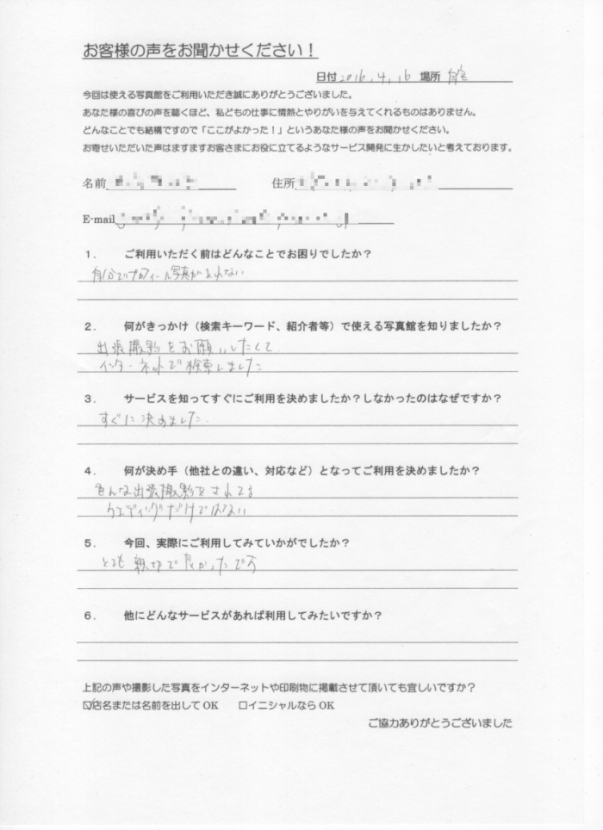 お客様の声をお聞かせください！
日付 2016.4.16 場所
今回は使える写真館をご利用いただき誠にありがとうございました。
あなた様の喜びの声を聴くほど、私どもの仕事に情熱とやりがいを与えてくれるものはありません。
どんなことでも結構ですので「ここがよかった！」というあなた様の声をお聞かせください。
お寄せいただいた声はますますお客さまにお役に立てるようなサービス開発に生かしたいと考えております。
名前 住所
E-mail
1． ご利用いただく前はどんなことでお困りでしたか？
自分でプロフィール写真がとれない
2． 何がきっかけ（検索キーワード、紹介者等）で使える写真館を知りましたか？
出張撮影をお願いしたくて
インターネットで検索しました
3． サービスを知ってすぐにご利用を決めましたか？しなかったのはなぜですか？
すぐに決めました。
4． 何が決め手（他社との違い、対応など）となってご利用を決めましたか？
色んな出張撮影をされてる
ウェディングだけではない
5． 今回、実際にご利用してみていかがでしたか？
とても親切で良かったです
6． 他にどんなサービスがあれば利用してみたいですか？
上記の声や撮影した写真をインターネットや印刷物に掲載させて頂いても宜しいですか？
☑店名または名前を出してOK □イニシャルならOK
ご協力ありがとうございました